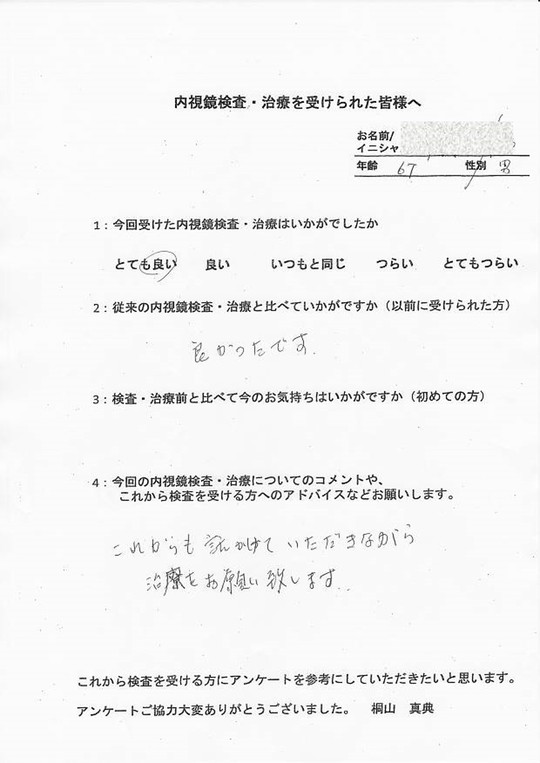 内視鏡検査・治療を受けられた皆様へ
お名前/
イニシャ
年齢 67 性別 男
1：今回受けた内視鏡検査・治療はいかがでしたか
とても良い 良い いつもと同じ つらい とてもつらい
2：従来の内視鏡検査・治療と比べていかがですか（以前に受けられた方）
良かったです.
3：検査・治療前と比べて今のお気持ちはいかがですか（初めての方）
4：今回の内視鏡検査・治療についてのコメントや、
これから検査を受ける方へのアドバイスなどお願いします。
これからも 話かけて いただきながら
治療をお願い致します.
これから検査を受ける方にアンケートを参考にしていただきたいと思います。
アンケートご協力大変ありがとうございました。 桐山 真典